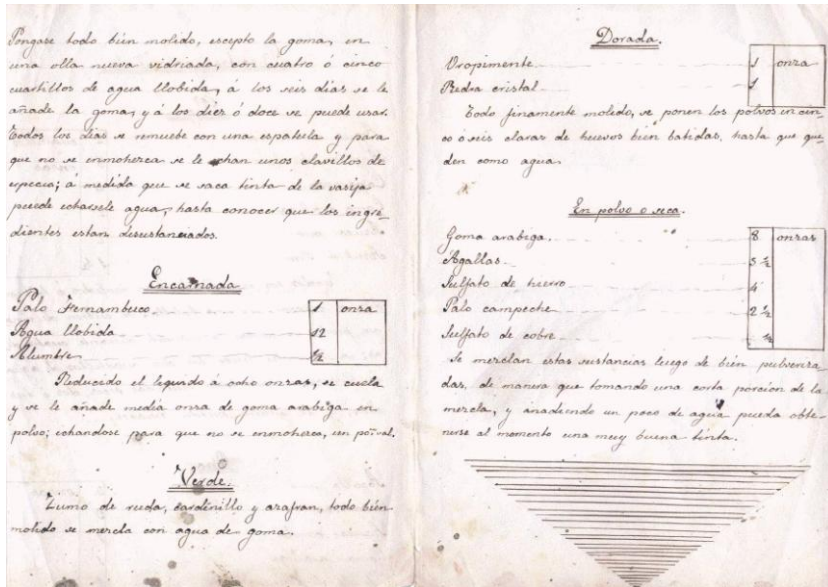 Póngase todo bién molido, escepto la goma, en
una olla nueva vidriada, con cuatro ó cinco
cuartillos de agua llobida, á los seis días se le
añade la goma, y á los dies ó doce se puede usar.
Todos los días se remuebe con una espatula y para
que no se enmohezca se le echan unos clavillos de
especia; á medida que se saca tinta de la vasija
puede echarsele agua, hasta conocer que los ingre-
dientes estan desustanciados.
Encarnada
Palo Fernambuco 1 onza
Agua llobida 12
Alumbre ½
Reducido el leguido á ocho onzas, se cuela
y se le añade media onza de goma arabiga en
polvo; echandose para que no se enmohezca, un
Verde.
Zumo de ruda, cardinillo y azafran, todo bién
molido se mezcla con agua de goma.
Dorada.
Oropimente 1 onza
Piedra cristal 1
Todo finamente molido, se ponen los polvos en cin-
co ó seis claras de huevos bien batidas, hasta que que-
den como agua.
En polvo o seca.
Goma arabiga. 8 onzas
Agallas. 3 ½
Sulfato de hierro 4
Palo campeche 2 ½
Sulfato de cobre ½
Se mezclan estas sustancias luego de bién pulveriza-
das, de manera que tomando una corta porcion de la
mezcla, y añadiendo un poco de agua pueda obte-
nerse al momento una muy buena tinta.